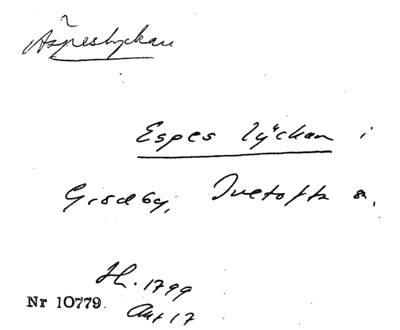 Äspeslyckan
Espes lyckan i
Gisleby, Ivetofta s,
H. 1799
Akt 17
Nr 10779.